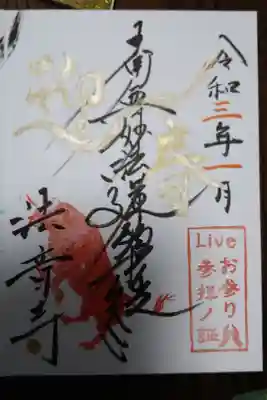 令和三年一月
南無妙法蓮華経
法音寺
Live
お参り
参拝ノ証